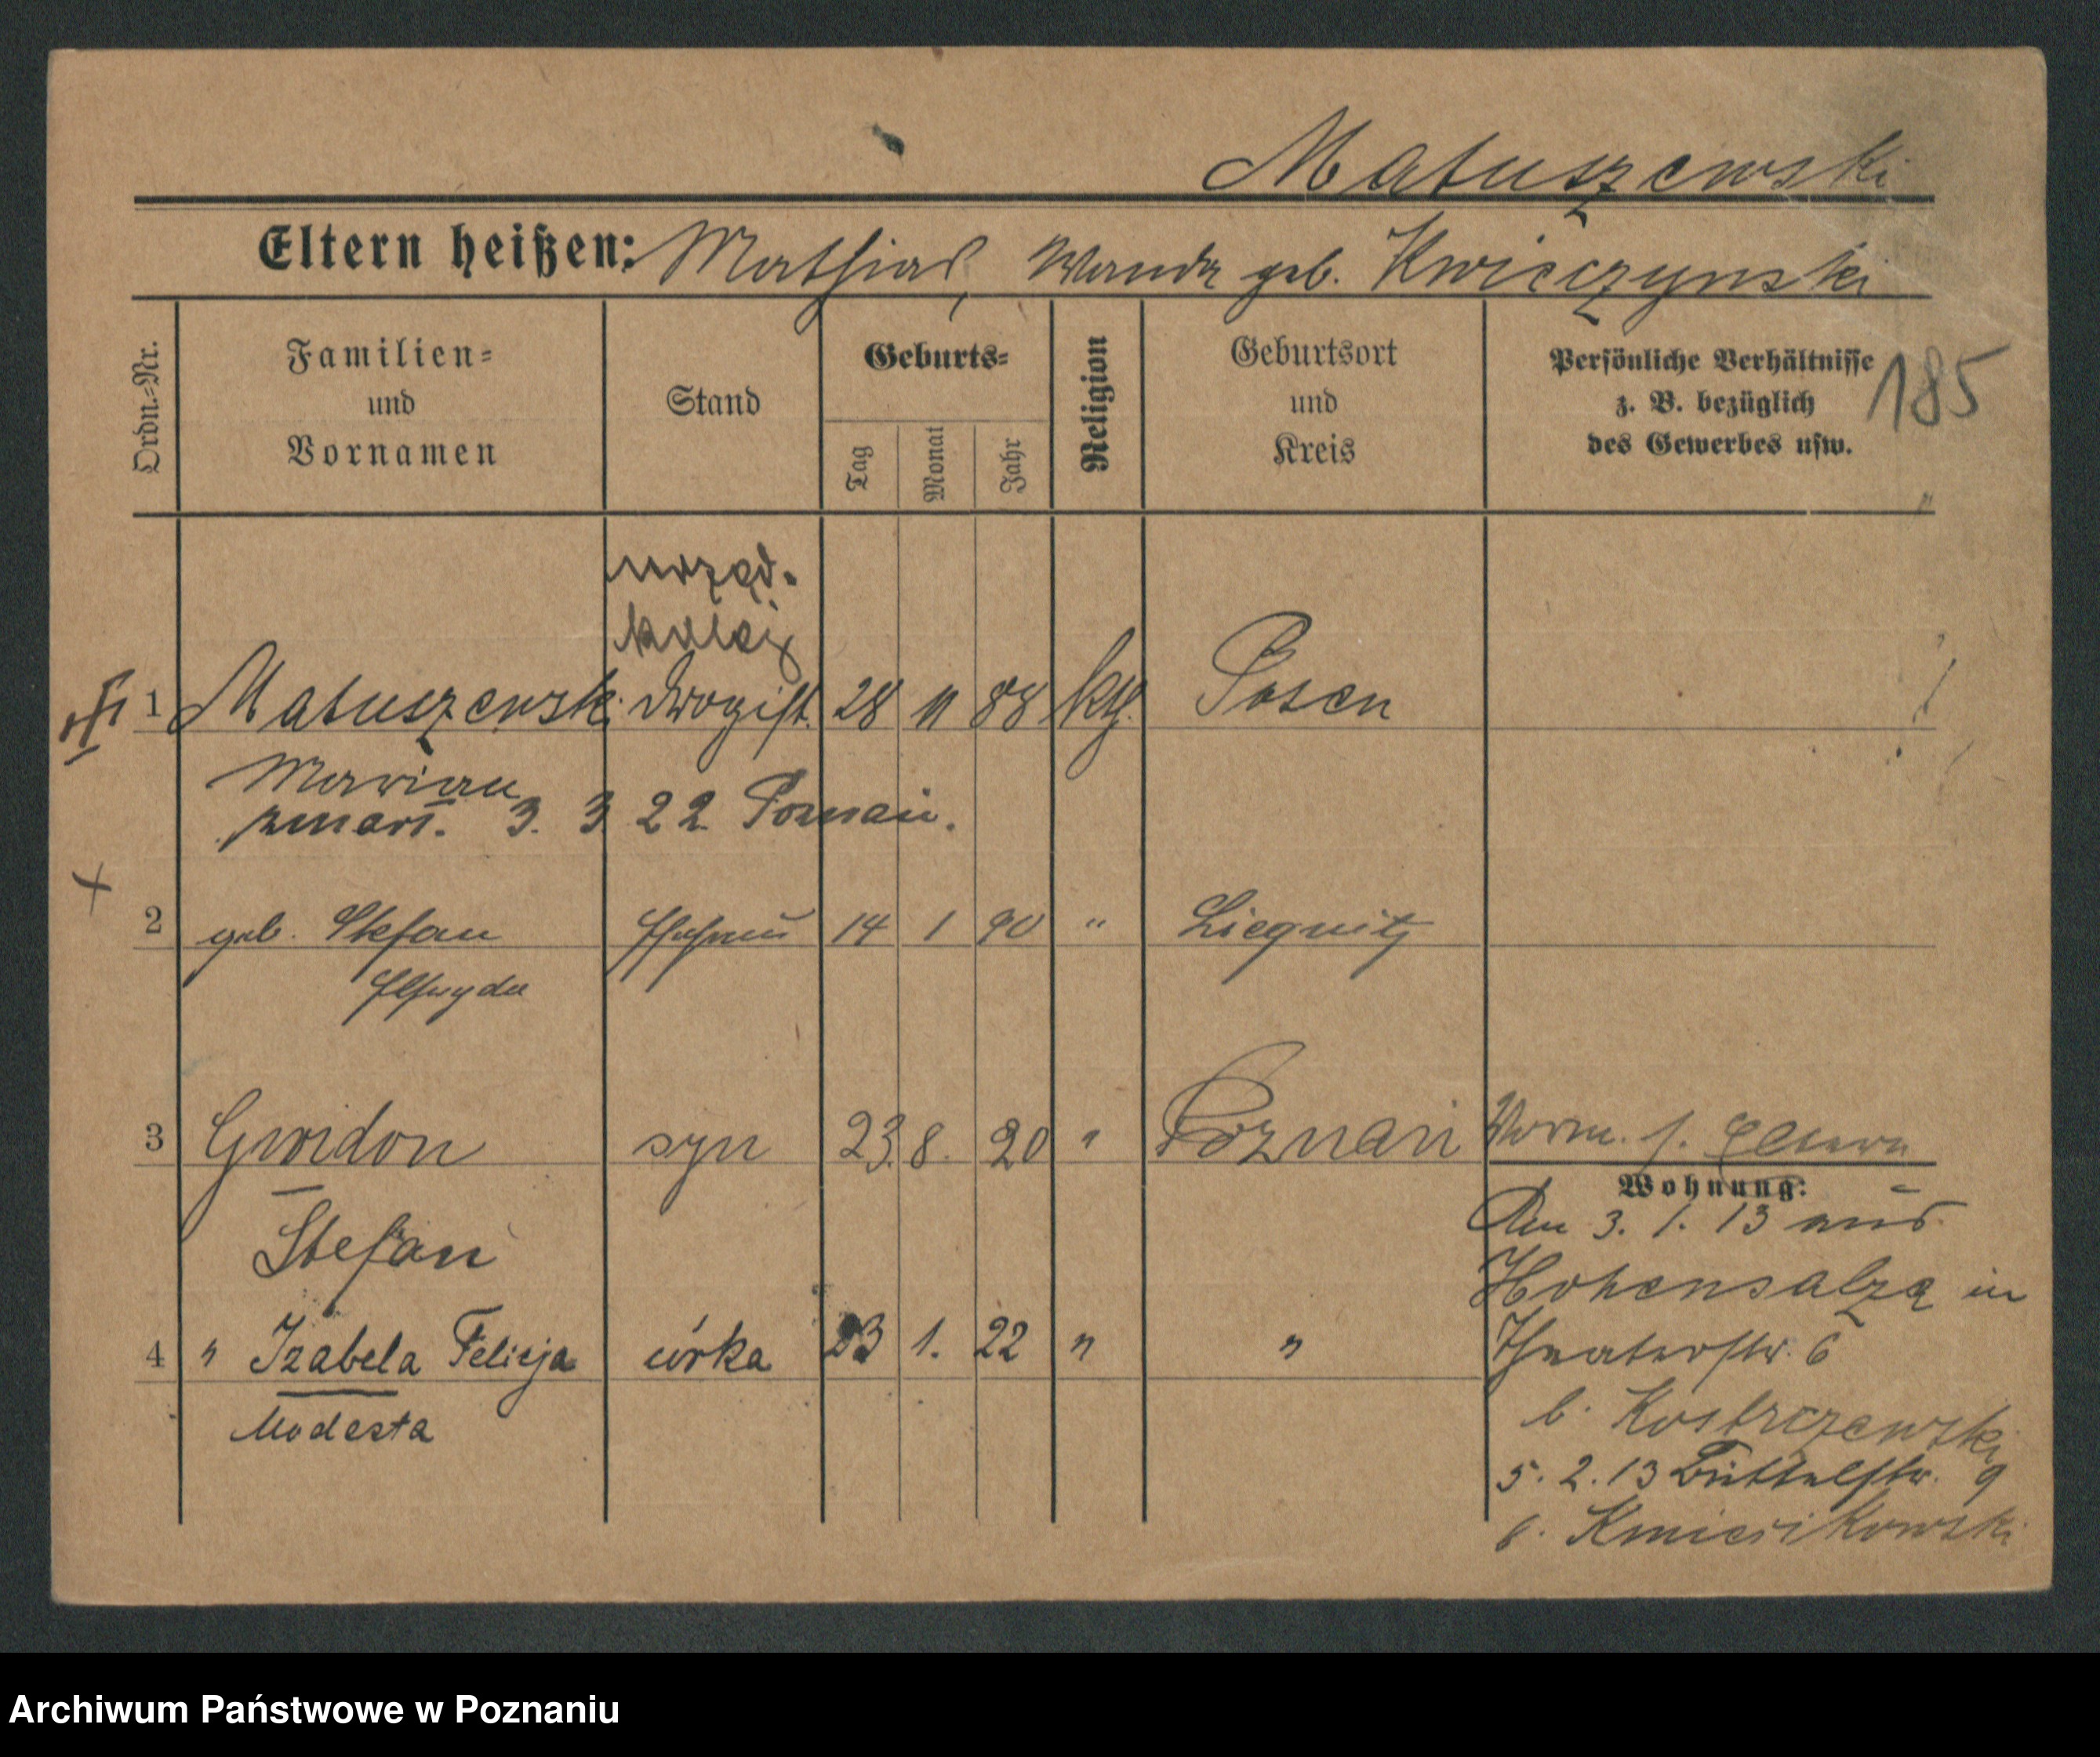 Matuszewski
Eltern heißen: Mathias, Wanda geb. Kwieczynski
Ordn.=Nr.
Familien=
und
Vornamen
Stand
Geburts=
Tag
Monat
Jahr
Religion
Geburtsort
und
Kreis
Persönliche Verhältnisse
z. B. bezüglich
des Gewerbes usw.
185
urzęd.
kolej
1 Matuszewski Drogist. 28 11 88 kth. Posen
Marian
zmarł. 3. 3 22 Poznań.
2 geb. Stefan Ehefrau 14 1 90 " Liegnitz
3 Gwidon syn 23. 8. 20 " Poznań Vorm. s. Eltern
Stefan
Wohnung:
Am 3. 1. 13 aus
Hohensalza in
Theaterstr. 6
b. Kostrzewski
4 " Izabela Felicja córka 23 1. 22 " "
Modesta
5. 2. 13 Büttelstr. 9
b. Kmiecikowski
Archiwum Państwowe w Poznaniu